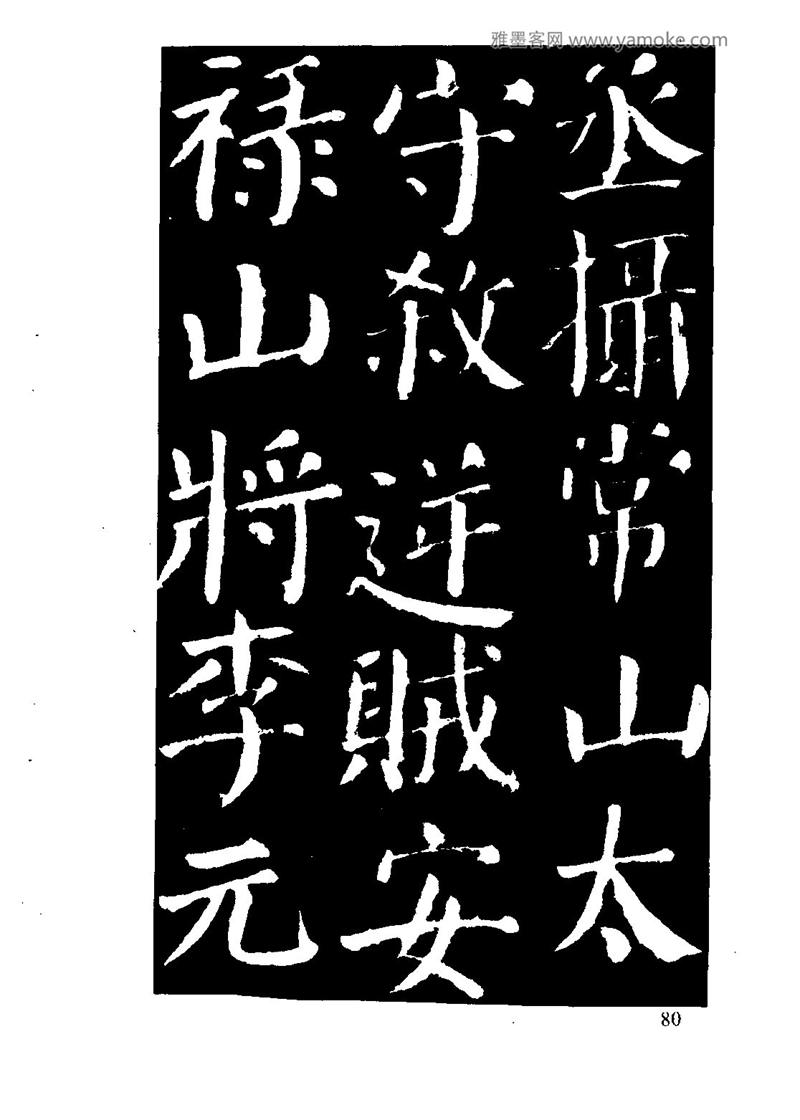 雅墨客网 www.yamoke.com
丞攝常山太
守殺逆賊安
禄山將李元
80